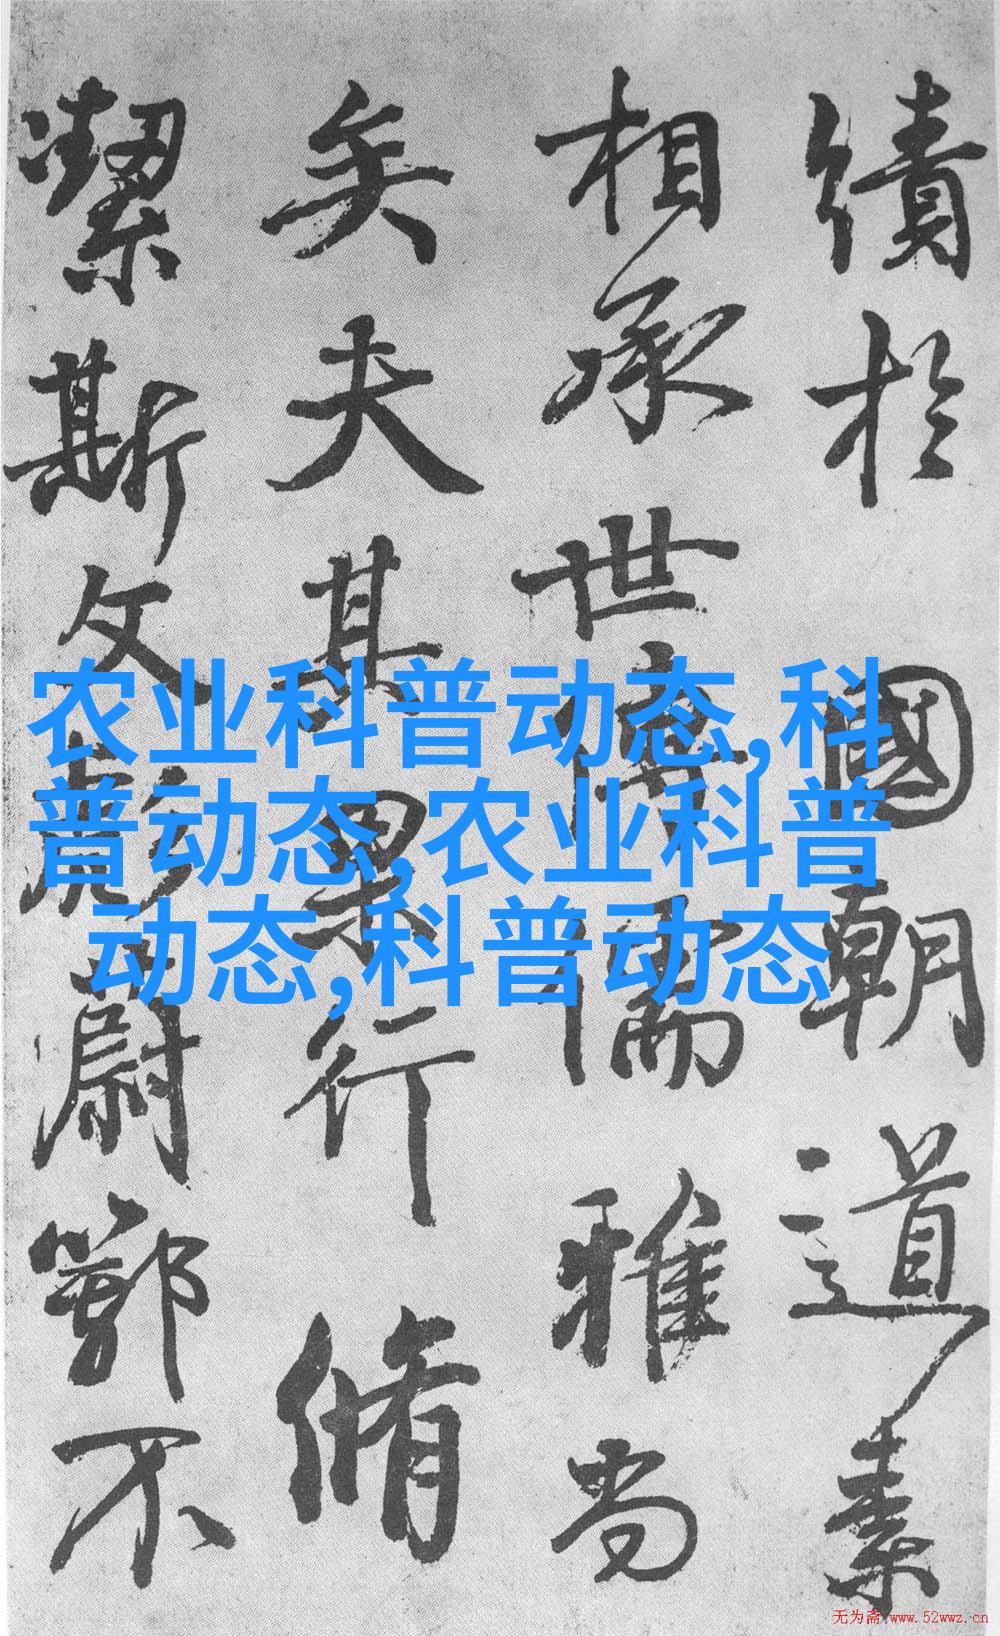 績於國朝道素
相承世傳儒雅尚
矣夫其果行脩
潔斯文彪蔚鄂不
农业科普动态,科
普动态,农业科普
动态,科普动态
无为斋 www.52wwz.cn